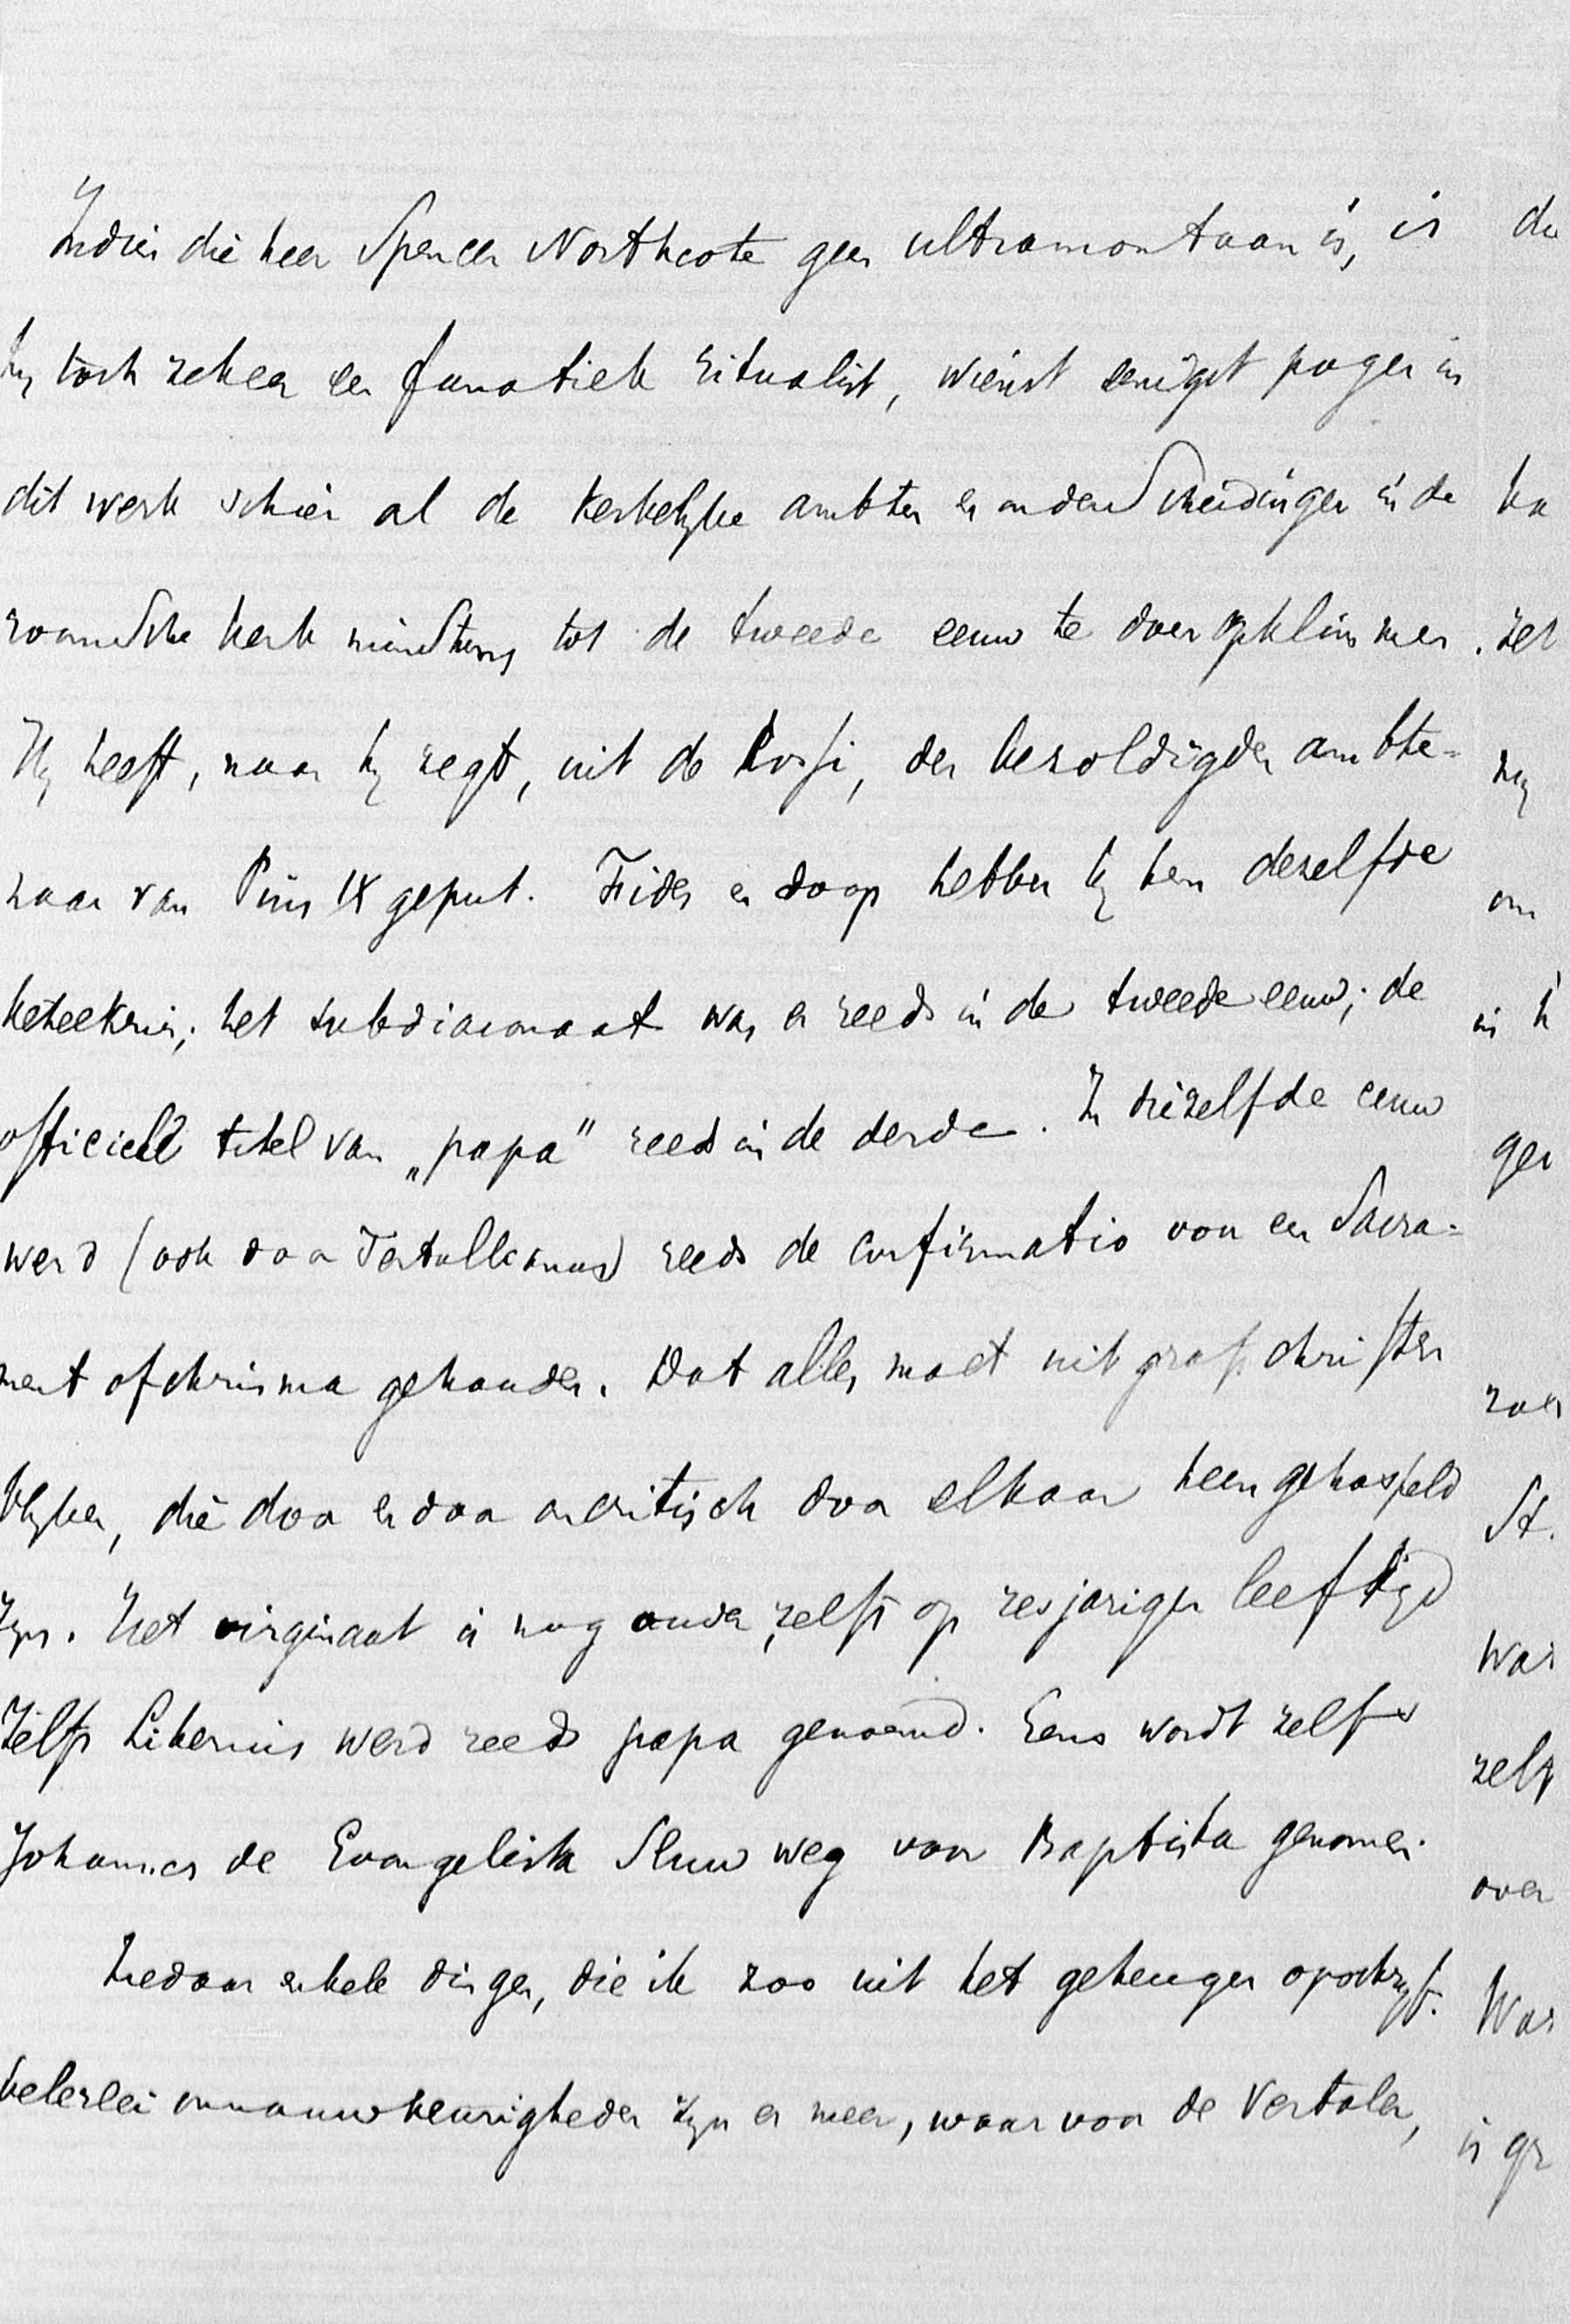 Indien die heer Spencer Northcote geen ultramontaan is, is
hij toch zeker een fanatiek ritualist, wiens eenigst pogen in
dit werk schier al de kerkelijke ambten en onderscheidingen in de
roomsche kerk minstens tot de tweede eeuw te doen opklimmen.
Hij heeft, naar hij zegt, uit de Rossi, den bezoldigden ambte-
naar van Pius IX geput. Fides en doop hebben bij hen dezelfde
beteekenis; het subdiaconaat was er reeds in de tweede eeuw; de
officieele titel van „papa" reeds in de derde. In diezelfde eeuw
werd (ook door Tertullianus) reeds de confirmatio voor een Sacra-
ment of chrisma gehouden. Dat alles moet uit grafschriften
blijken, die door en door oncritisch door elkaar heen gehaspeld
zijn. Het virginaat is nog ouder, zelfs op zesjarigen leeftijd
Zelfs Liberius werd reeds papa genoemd. Eens wordt zelfs
Johannes de Evangelista sluw weg voor Baptista genomen.
Ziedaar enkele dingen, die ik zoo uit het geheugen opschrijf.
Velerlei onnauwkeurigheden zijn er meer, waarvoor de Vertaler,